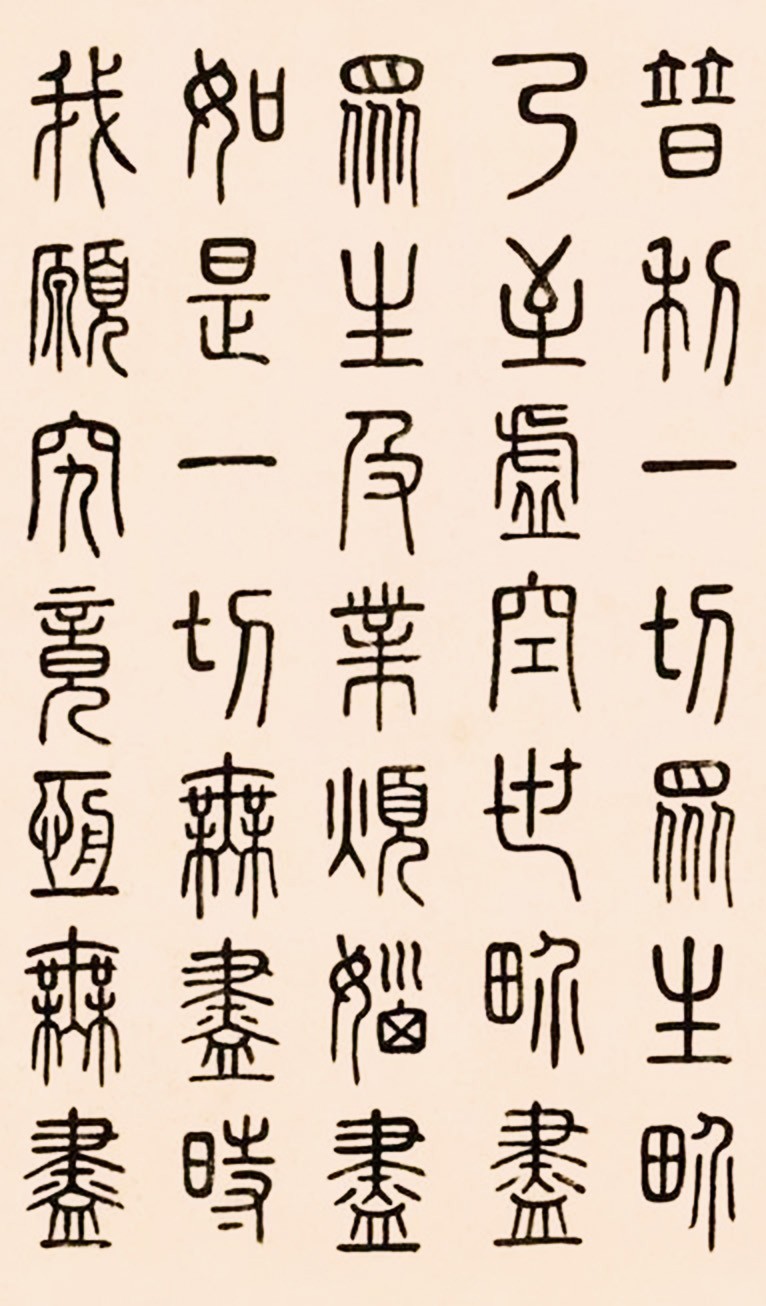 普利一切眾生界
乃至虛空世界盡
眾生及業煩惱盡
如是一切無盡時
我願究竟恆無盡